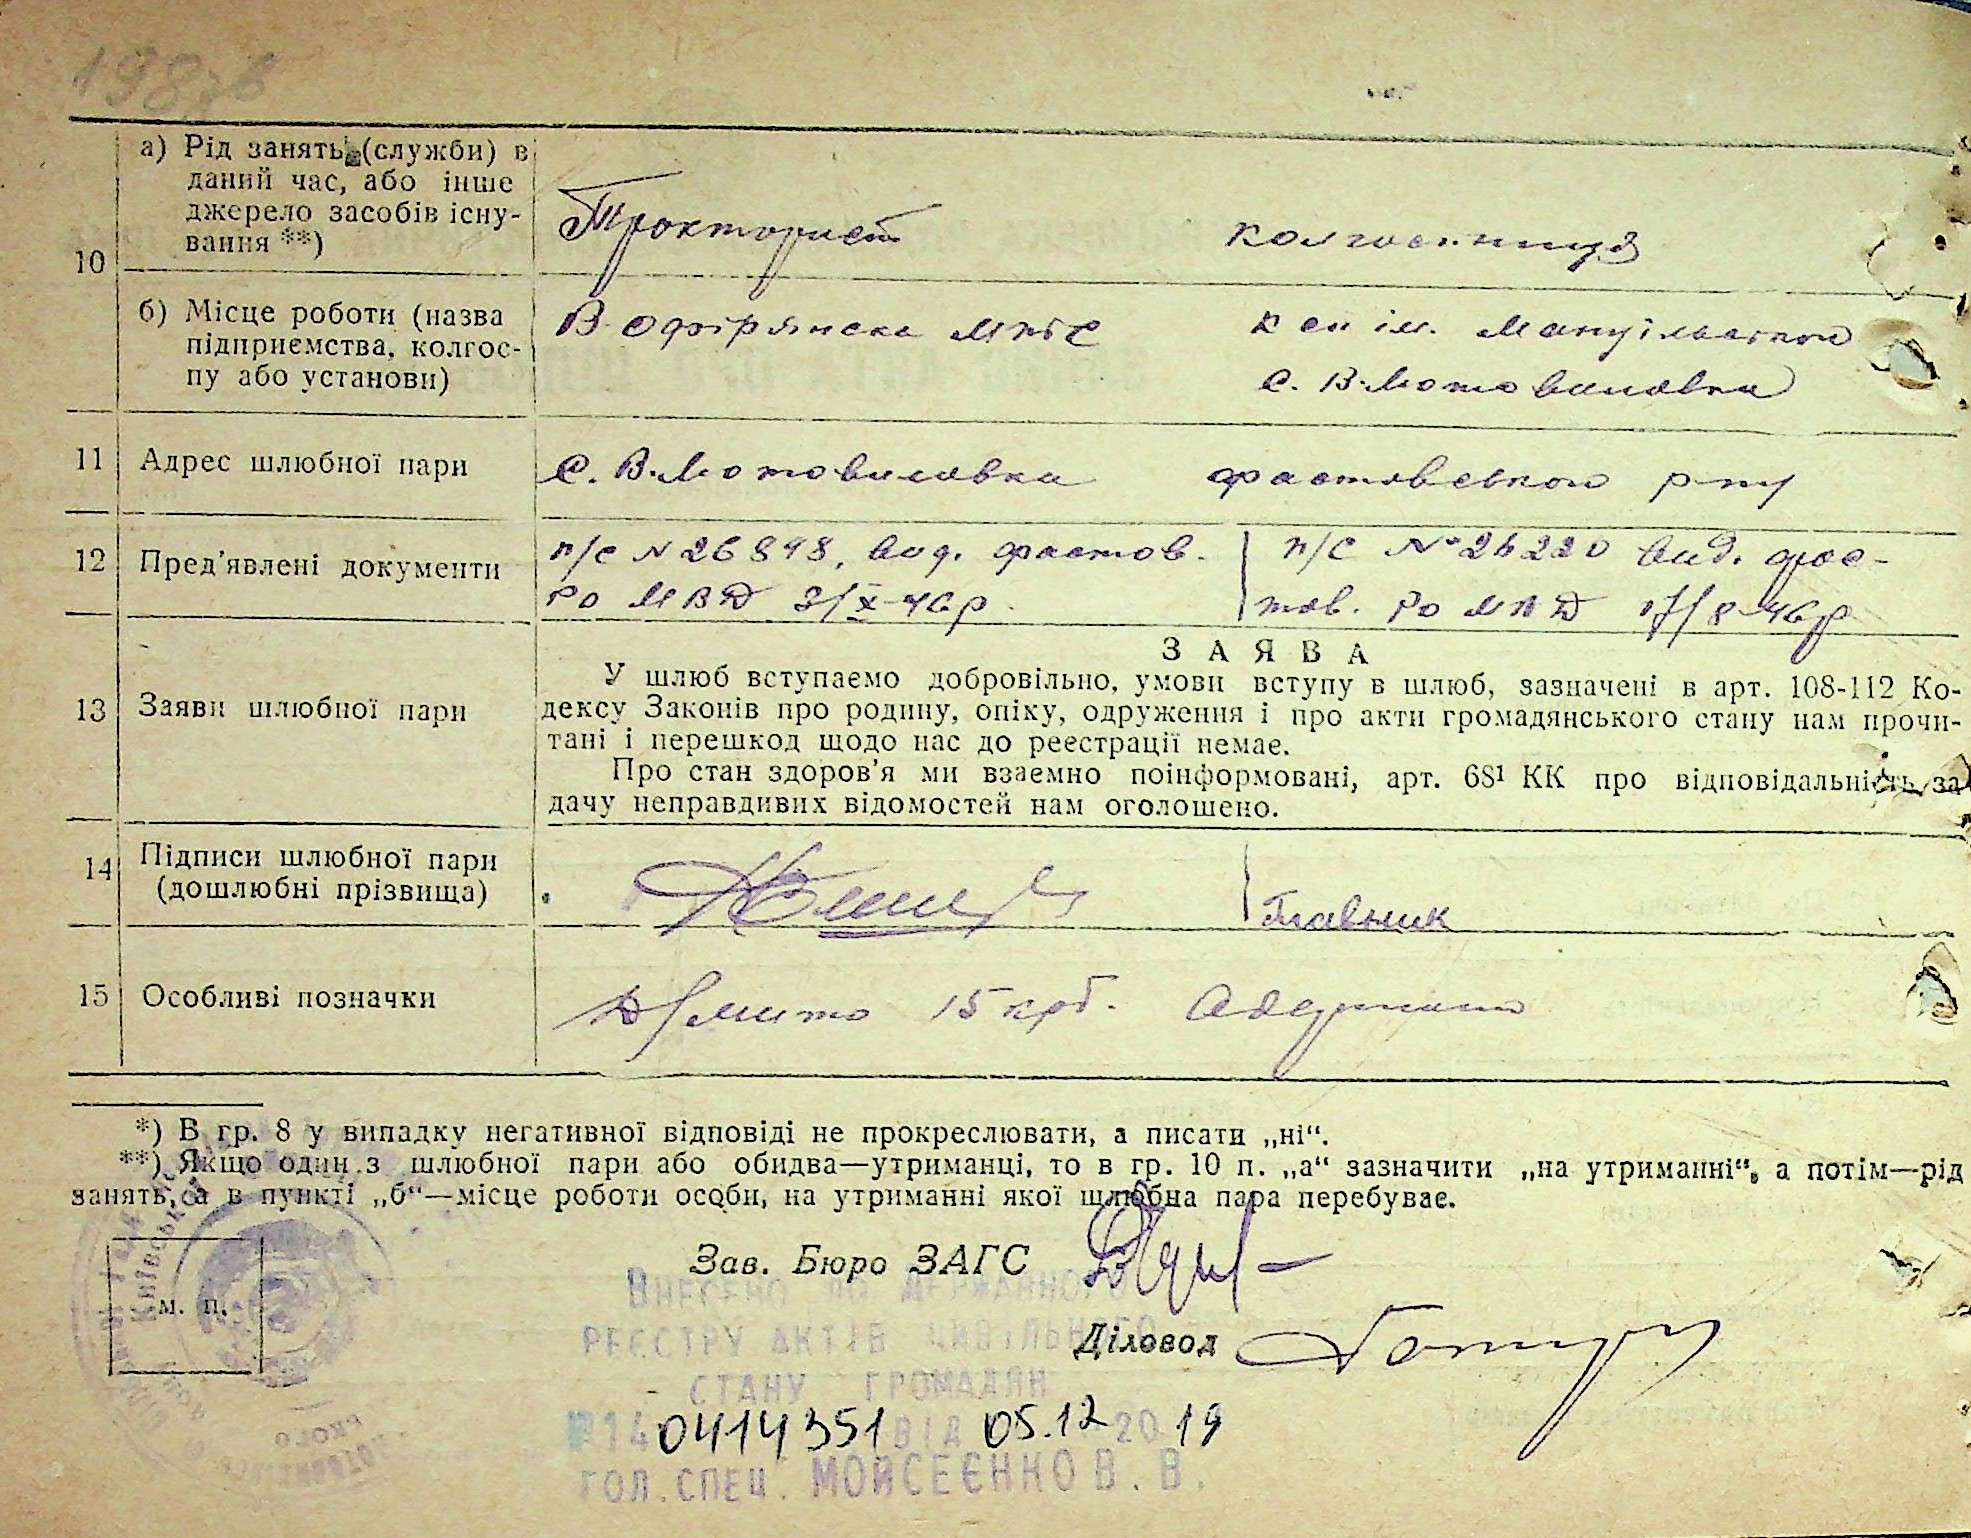 а) Рід занять (служби) в
даний час, або інше
джерело засобів існу-
вання **)
Тракторист колгоспниця
10
б) Місце роботи (назва
підприємства, колгос-
пу або установи)
В-Офірянска МТС
к-сп ім. Мануільського
с. В-Мотовилівка
11 Адрес шлюбної пари с. В-Мотовилівка Фастівського р-ну
12 Пред'явлені документи
п/с N 26898, вид. Фастов.
РО МВД 3/X-46р.
п/с № 26220 вид. Фас-
тов. РО МВД 17/8-46р
13 Заяви шлюбної пари
ЗАЯВА
У шлюб вступаємо добровільно, умови вступу в шлюб, зазначені в арт. 108-112 Ко-
дексу Законів про родину, опіку, одруження і про акти громадянського стану нам прочи-
тані і перешкод щодо нас до реєстрації немає.
Про стан здоров'я ми взаємно поінформовані, арт. 68¹ КК про відповідальність за
дачу неправдивих відомостей нам оголошено.
14 Підписи шлюбної пари
(дошлюбні прізвища)
Главник
15 Особливі позначки
Д/мито 15 крб.
*) В гр. 8 у випадку негативної відповіді не прокреслювати, а писати „ні“.
**) Якщо один з шлюбної пари або обидва—утриманці, то в гр. 10 п. „а“ зазначити „на утриманні“, а потім—рід
занять, а в пункті „б“—місце роботи особи, на утриманні якої шлюбна пара перебуває.
Зав. Бюро ЗАГС
м. п.
Діловод
Внесено до Державного
реєстру актів цивільного
стану громадян
№14 0414351 від 05.12 2019
гол. спец. Мойсеєнко В. В.